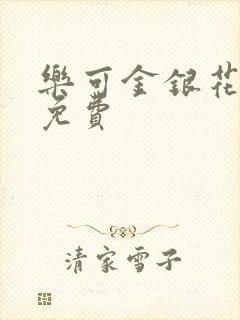 樂可金銀花
免費
清家雪子